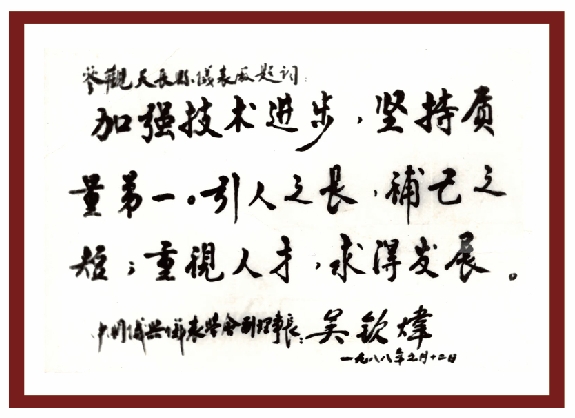 参觀天長縣儀表廠题词:
加强技术进步,坚持质
量第一。引人之長,補己之
短;重視人才,求得发展。
中国仪器仪表学会副理事長:吴钦炜
一九八八年三月十二日